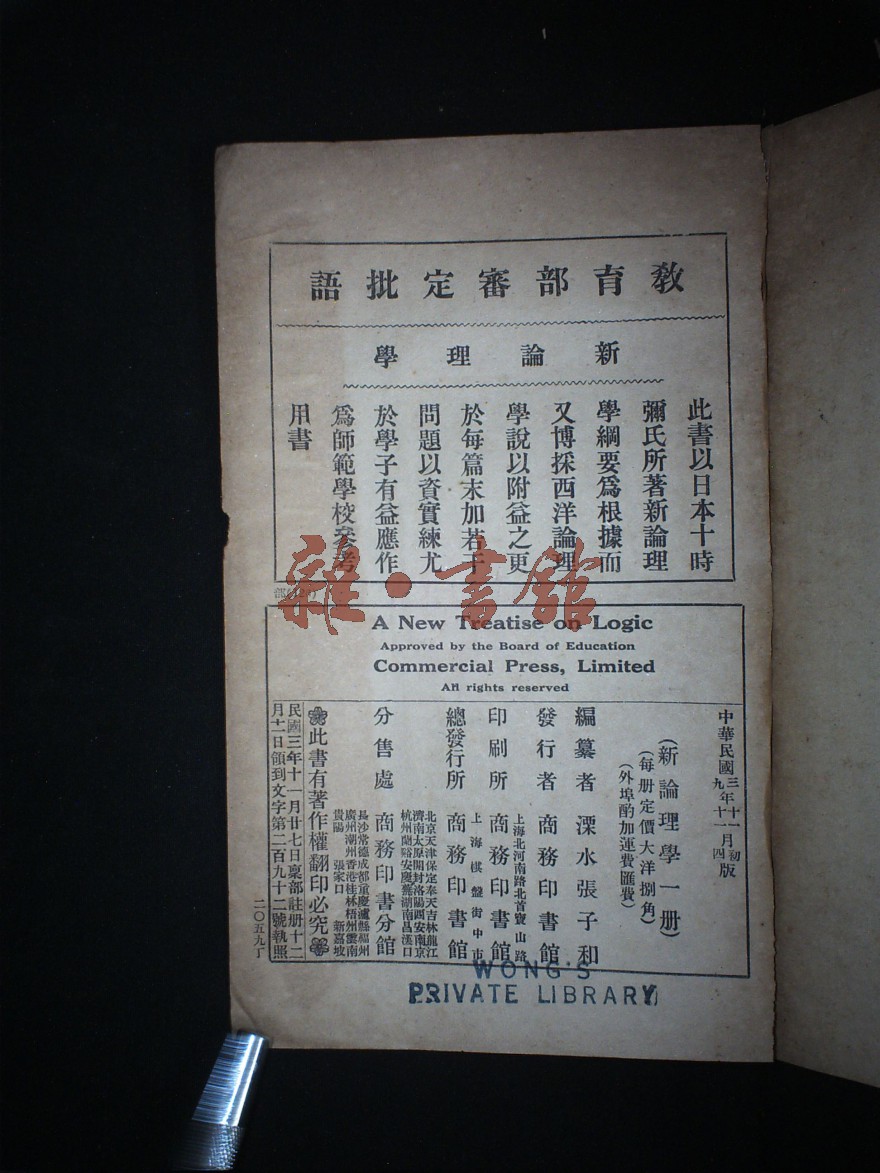 教育部審定批語
新論理學
此書以日本十時
彌氏所著新論理
學綱要爲根據而
又博採西洋論理
學說以附益之更
於每篇末加若干
問題以資實練尤
於學子有益應作
爲師範學校參考
用書
雜·書館
A New Treatise on Logic
Approved by the Board of Education
Commercial Press, Limited
All rights reserved
中華民國三年十一月初版
九年十一月四版
(新論理學一册)
(每册定價大洋捌角)
(外埠酌加運費匯費)
編纂者 溧水張子和
發行者 商務印書館
上海北河南路北首寶山路
印刷所 商務印書館
上海棋盤街中市
總發行所 商務印書館
北京天津保定奉天吉林龍江
濟南太原開封洛陽西安南京
杭州蘭谿安慶蕪湖南昌漢口
分售處 商務印書分館
長沙常德成都重慶瀘縣福州
廣州潮州香港桂林梧州雲南
貴陽 張家口 新嘉坡
此書有著作權翻印必究
民國三年十一月廿七日稟部註册十二
月十二日領到文字第二百九十二號執照
二〇五九丁
WONG'S
PRIVATE LIBRARY